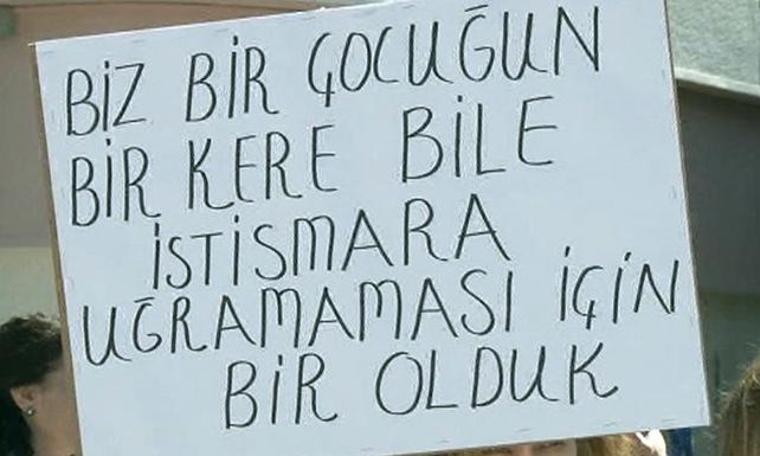 BİZ BİR ÇOCUĞUN
BİR KERE BİLE
İSTİSMARA
UĞRAMAMASI İÇİN
BİR OLDUK